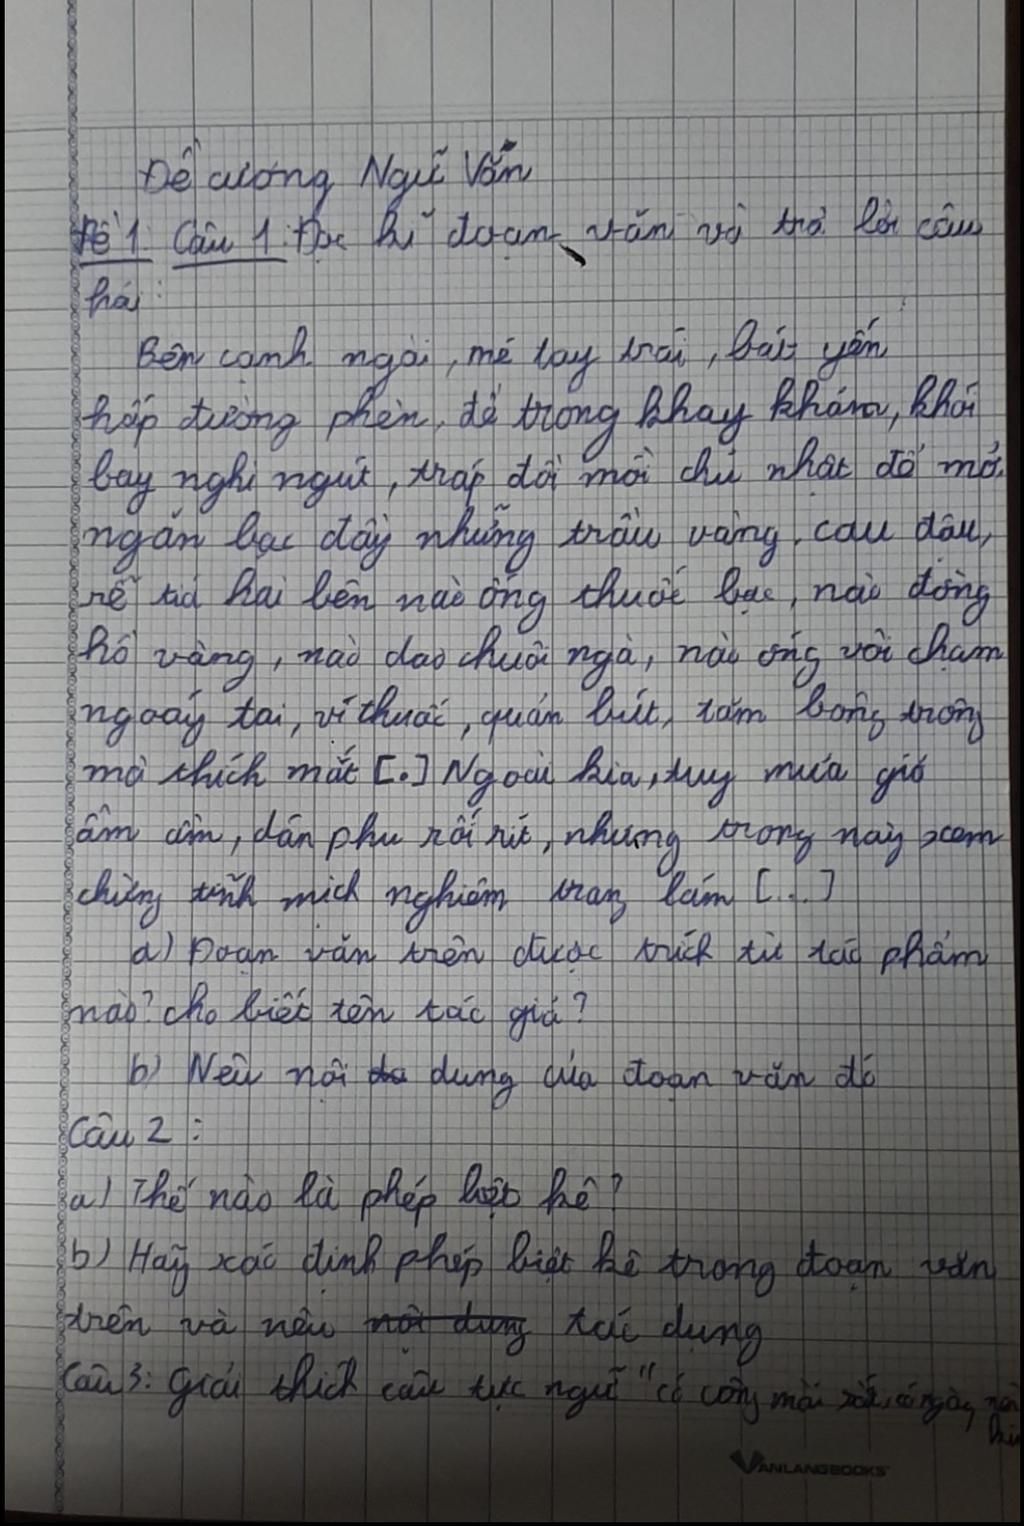 Đề cương Ngữ Văn
Đề 1 Câu 1: Đọc kĩ đoạn văn và trả lời câu
hỏi:
Bên cạnh ngài, mé tay trái, bát yến
hấp đường phèn, để trong khay khảm, khói
bay nghi ngút, tráp đồi mồi chữ nhật để mở,
ngăn bạc đầy những trầu vàng, cau đậu,
rễ tía hai bên nào ống thuốc bạc, nào đồng
hồ vàng, nào dao chuôi ngà, nào ống vôi chạm
ngoáy tai, ví thuốc, quản bút, tăm bông trông
mà thích mắt [.] Ngoài kia, tuy mưa gió
ầm ầm, dân phu rối rít, nhưng trong này xem
chừng tĩnh mịch nghiêm trang lắm [...]
a) Đoạn văn trên được trích từ tác phẩm
nào? cho biết tên tác giả?
b) Nêu nội dung của đoạn văn đó
Câu 2:
a) Thế nào là phép liệt kê?
b) Hãy xác định phép liệt kê trong đoạn văn
trên và nêu nội dung tác dụng
Câu 3: Giải thích câu tục ngữ "có công mài sắt, có ngày nên
kim
VANLANGBOOKS